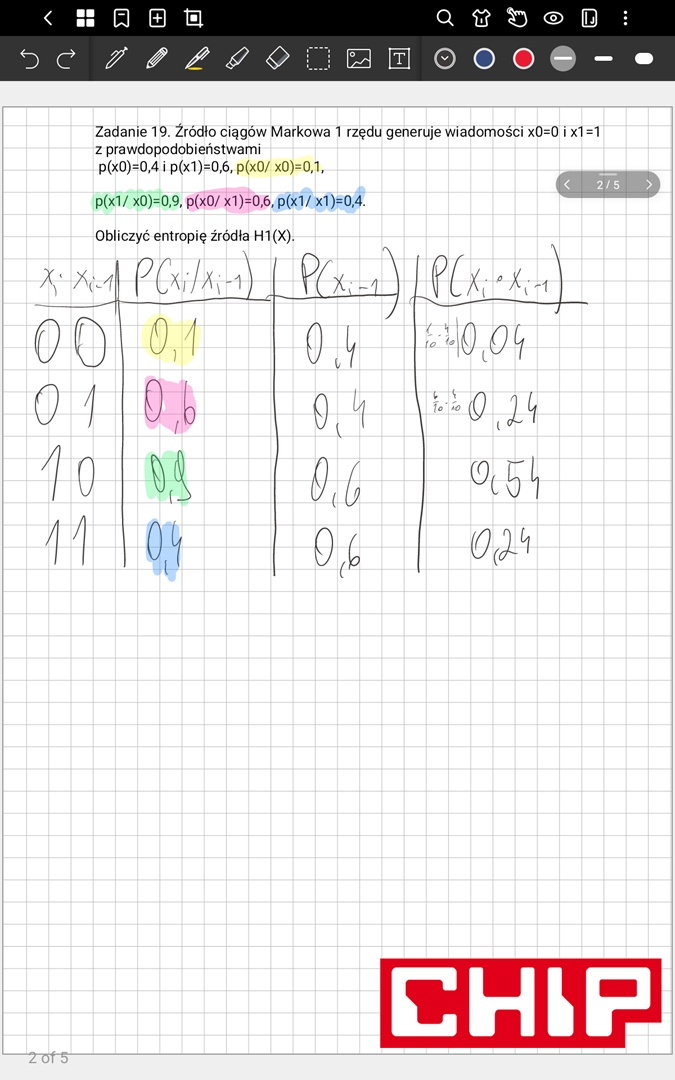 Zadanie 19. Źródło ciągów Markowa 1 rzędu generuje wiadomości x0=0 i x1=1
z prawdopodobieństwami
p(x0)=0,4 i p(x1)=0,6, p(x0/ x0)=0,1,
2 / 5
p(x1/ x0)=0,9, p(x0/ x1)=0,6, p(x1/ x1)=0,4.
Obliczyć entropię źródła H1(X).
xi xi-1 P(xi/xi-1) P(xi-1) P(xi · xi-1)
00 0,1 0,4 1/10 · 4/10 0,04
01 0,6 0,4 6/10 · 4/10 0,24
10 0,9 0,6 0,54
11 0,4 0,6 0,24
CHIP
2 of 5